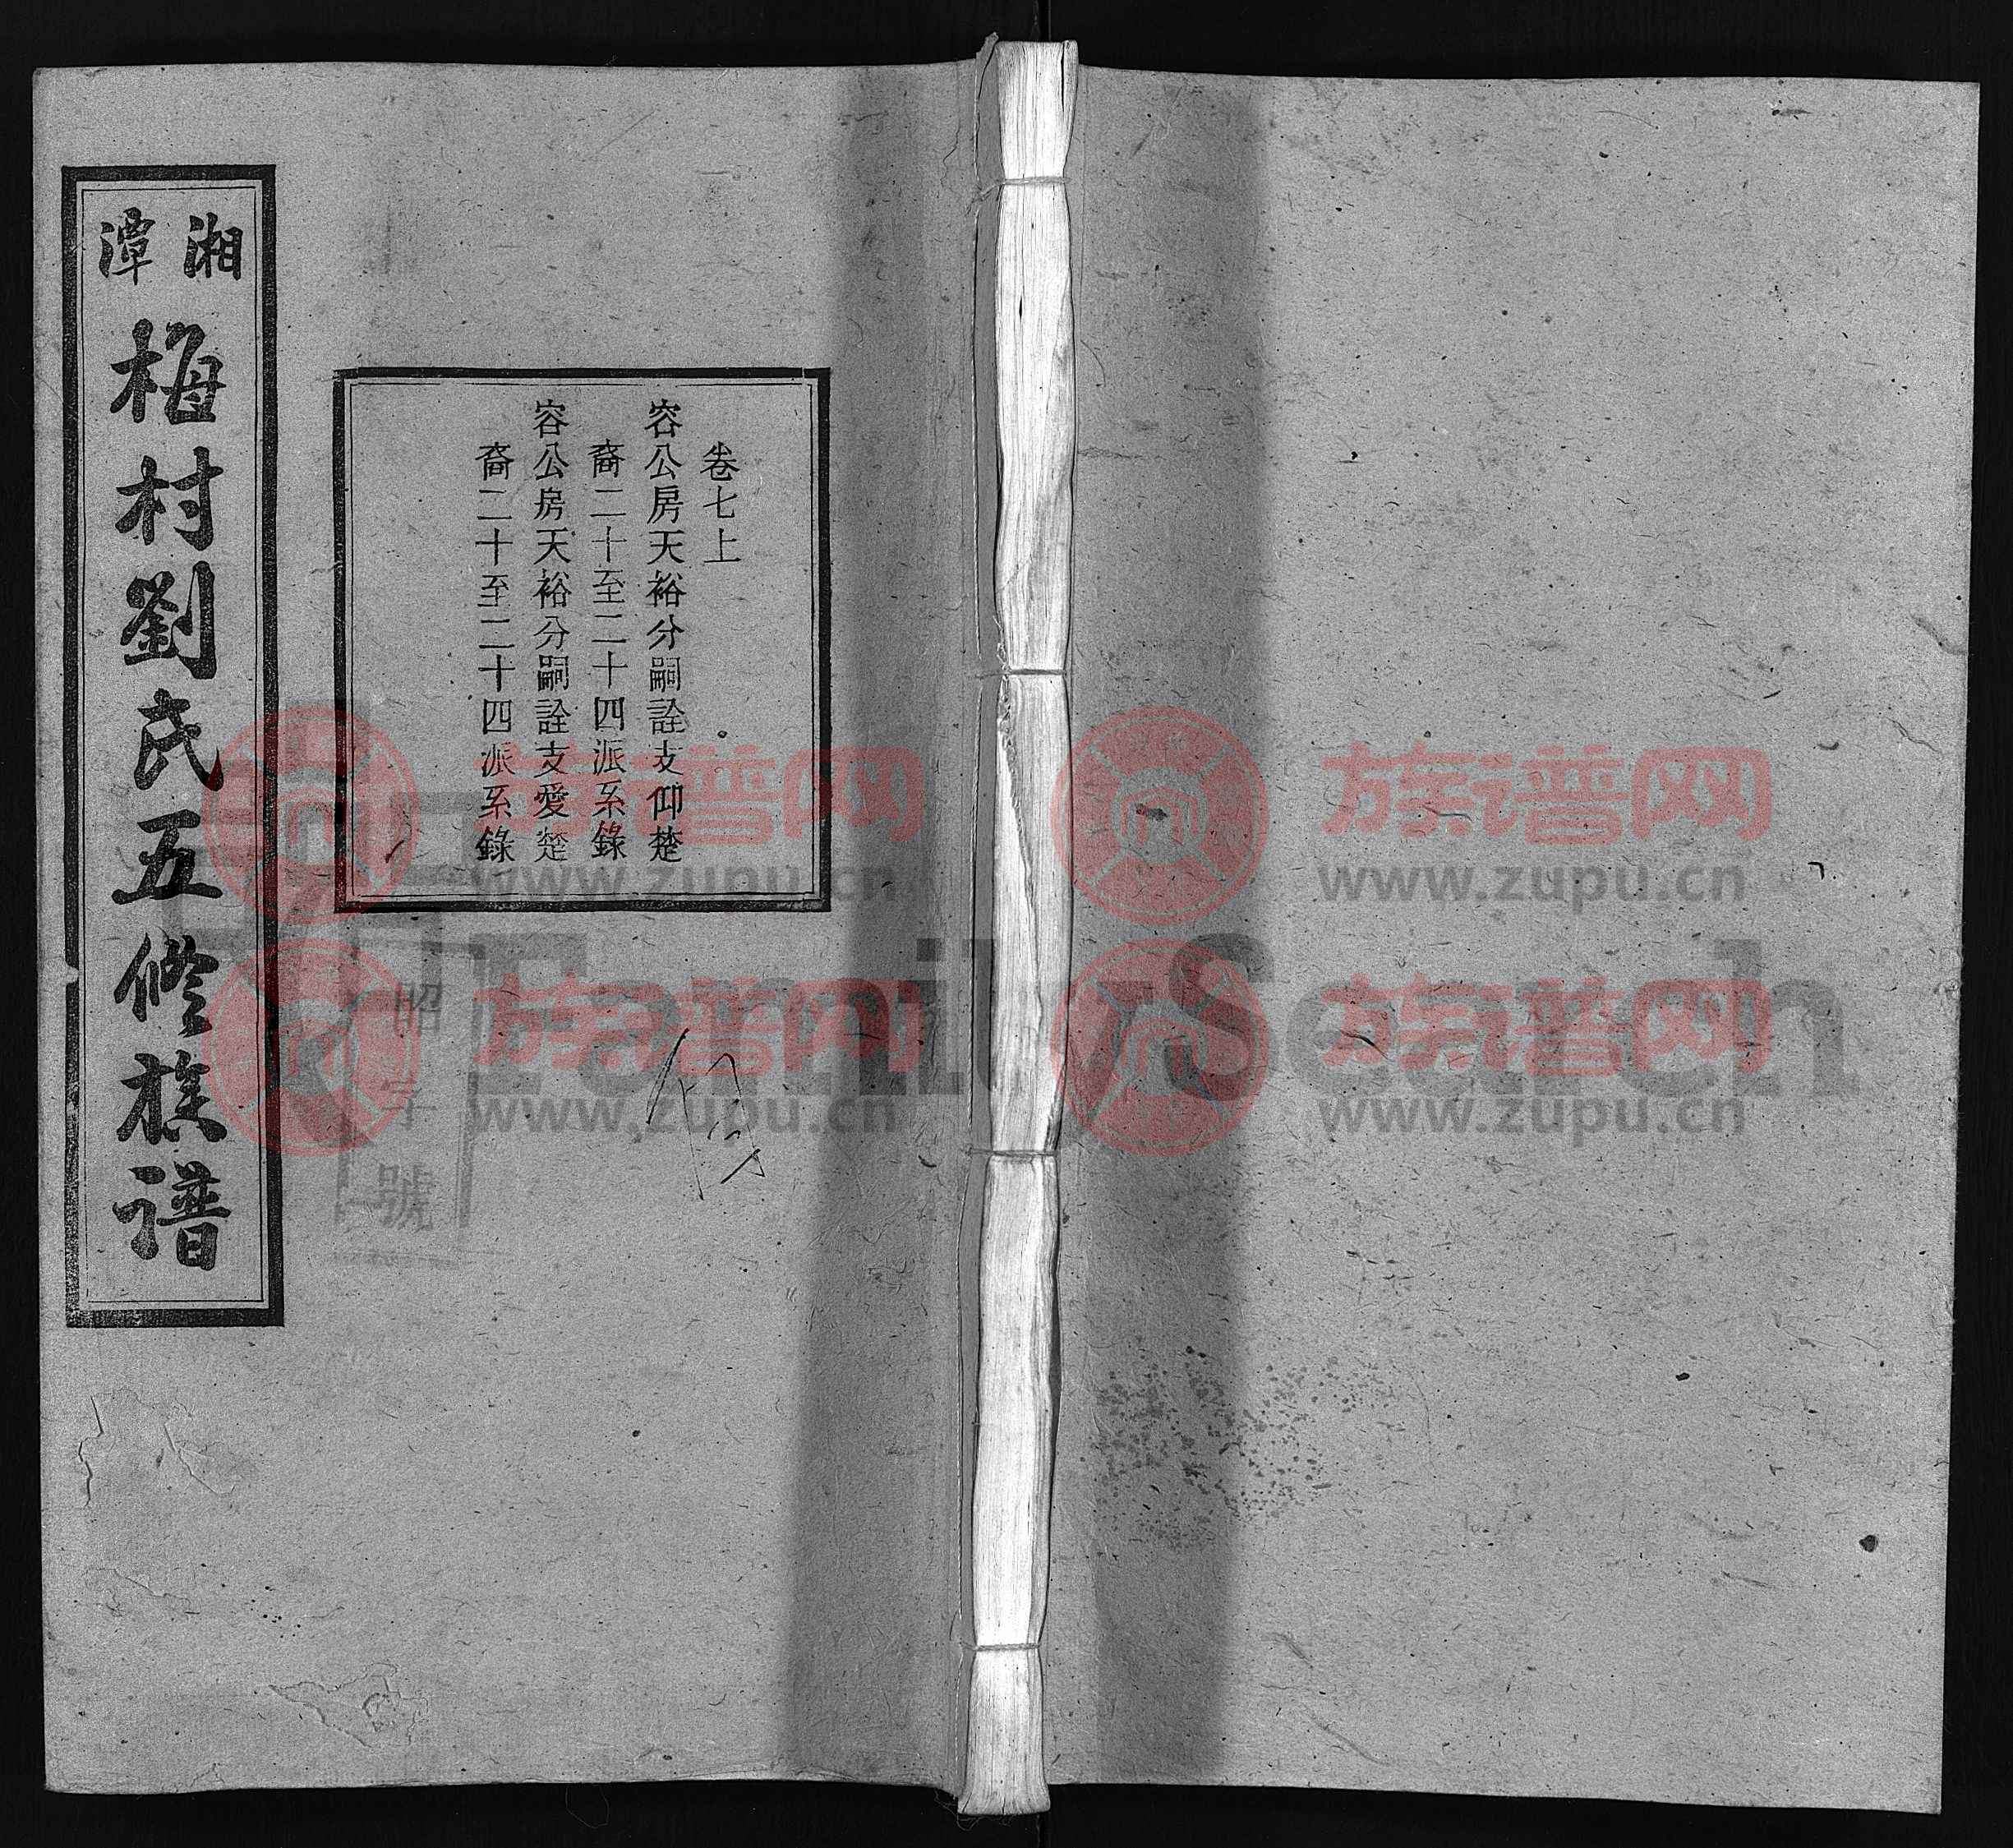 湘潭
梅村劉氏五修族譜
卷七上
容公房天裕分嗣詮支仰楚
裔二十至二十四派系錄
容公房天裕分嗣詮支愛楚
裔二十至二十四派系錄
昭字號
族谱网 族谱网
www.zupu.cn www.zupu.cn
FamilySearch
族谱网 族谱网
www.zupu.cn www.zupu.cn